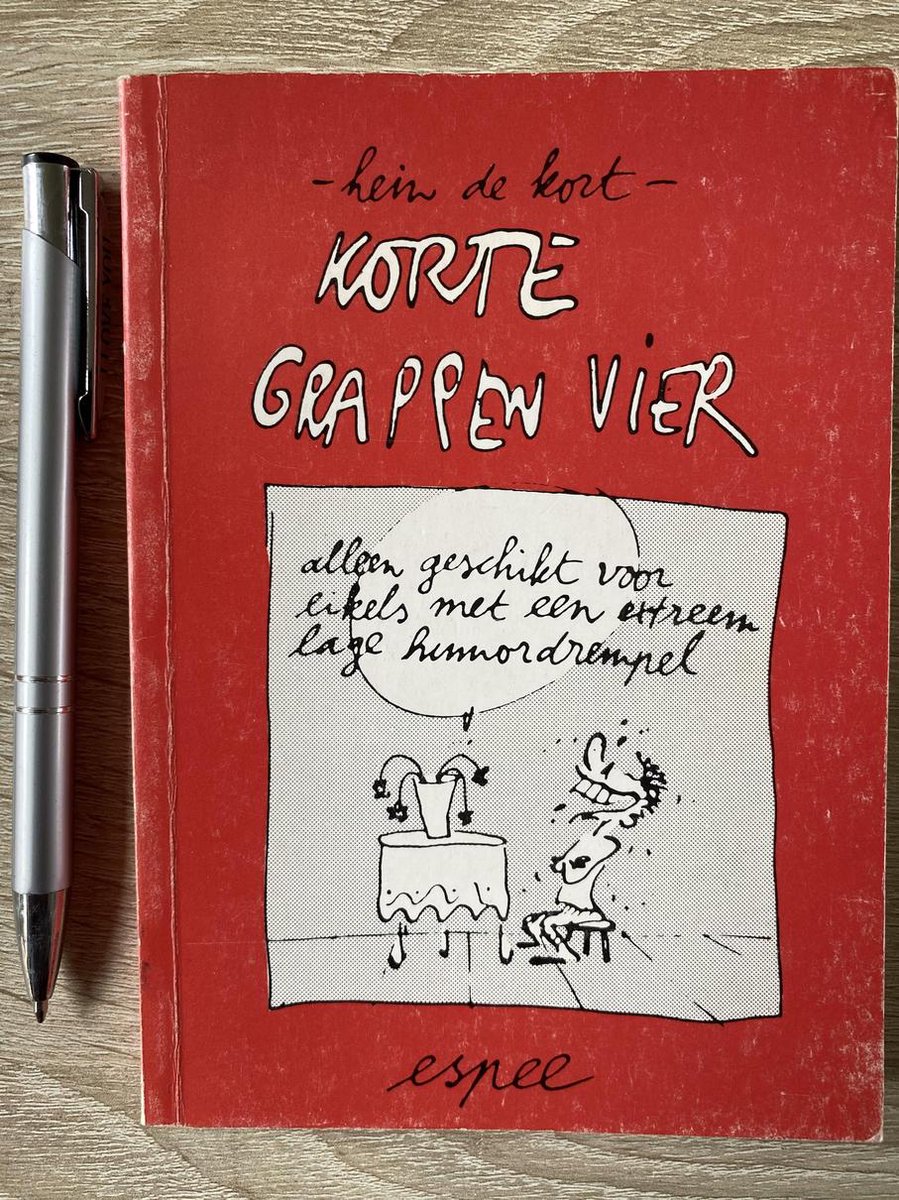 -hein de kort-
KORTE
GRAPPEN VIER
alleen geschikt voor
eikels met een extreem
lage humordrempel
espee